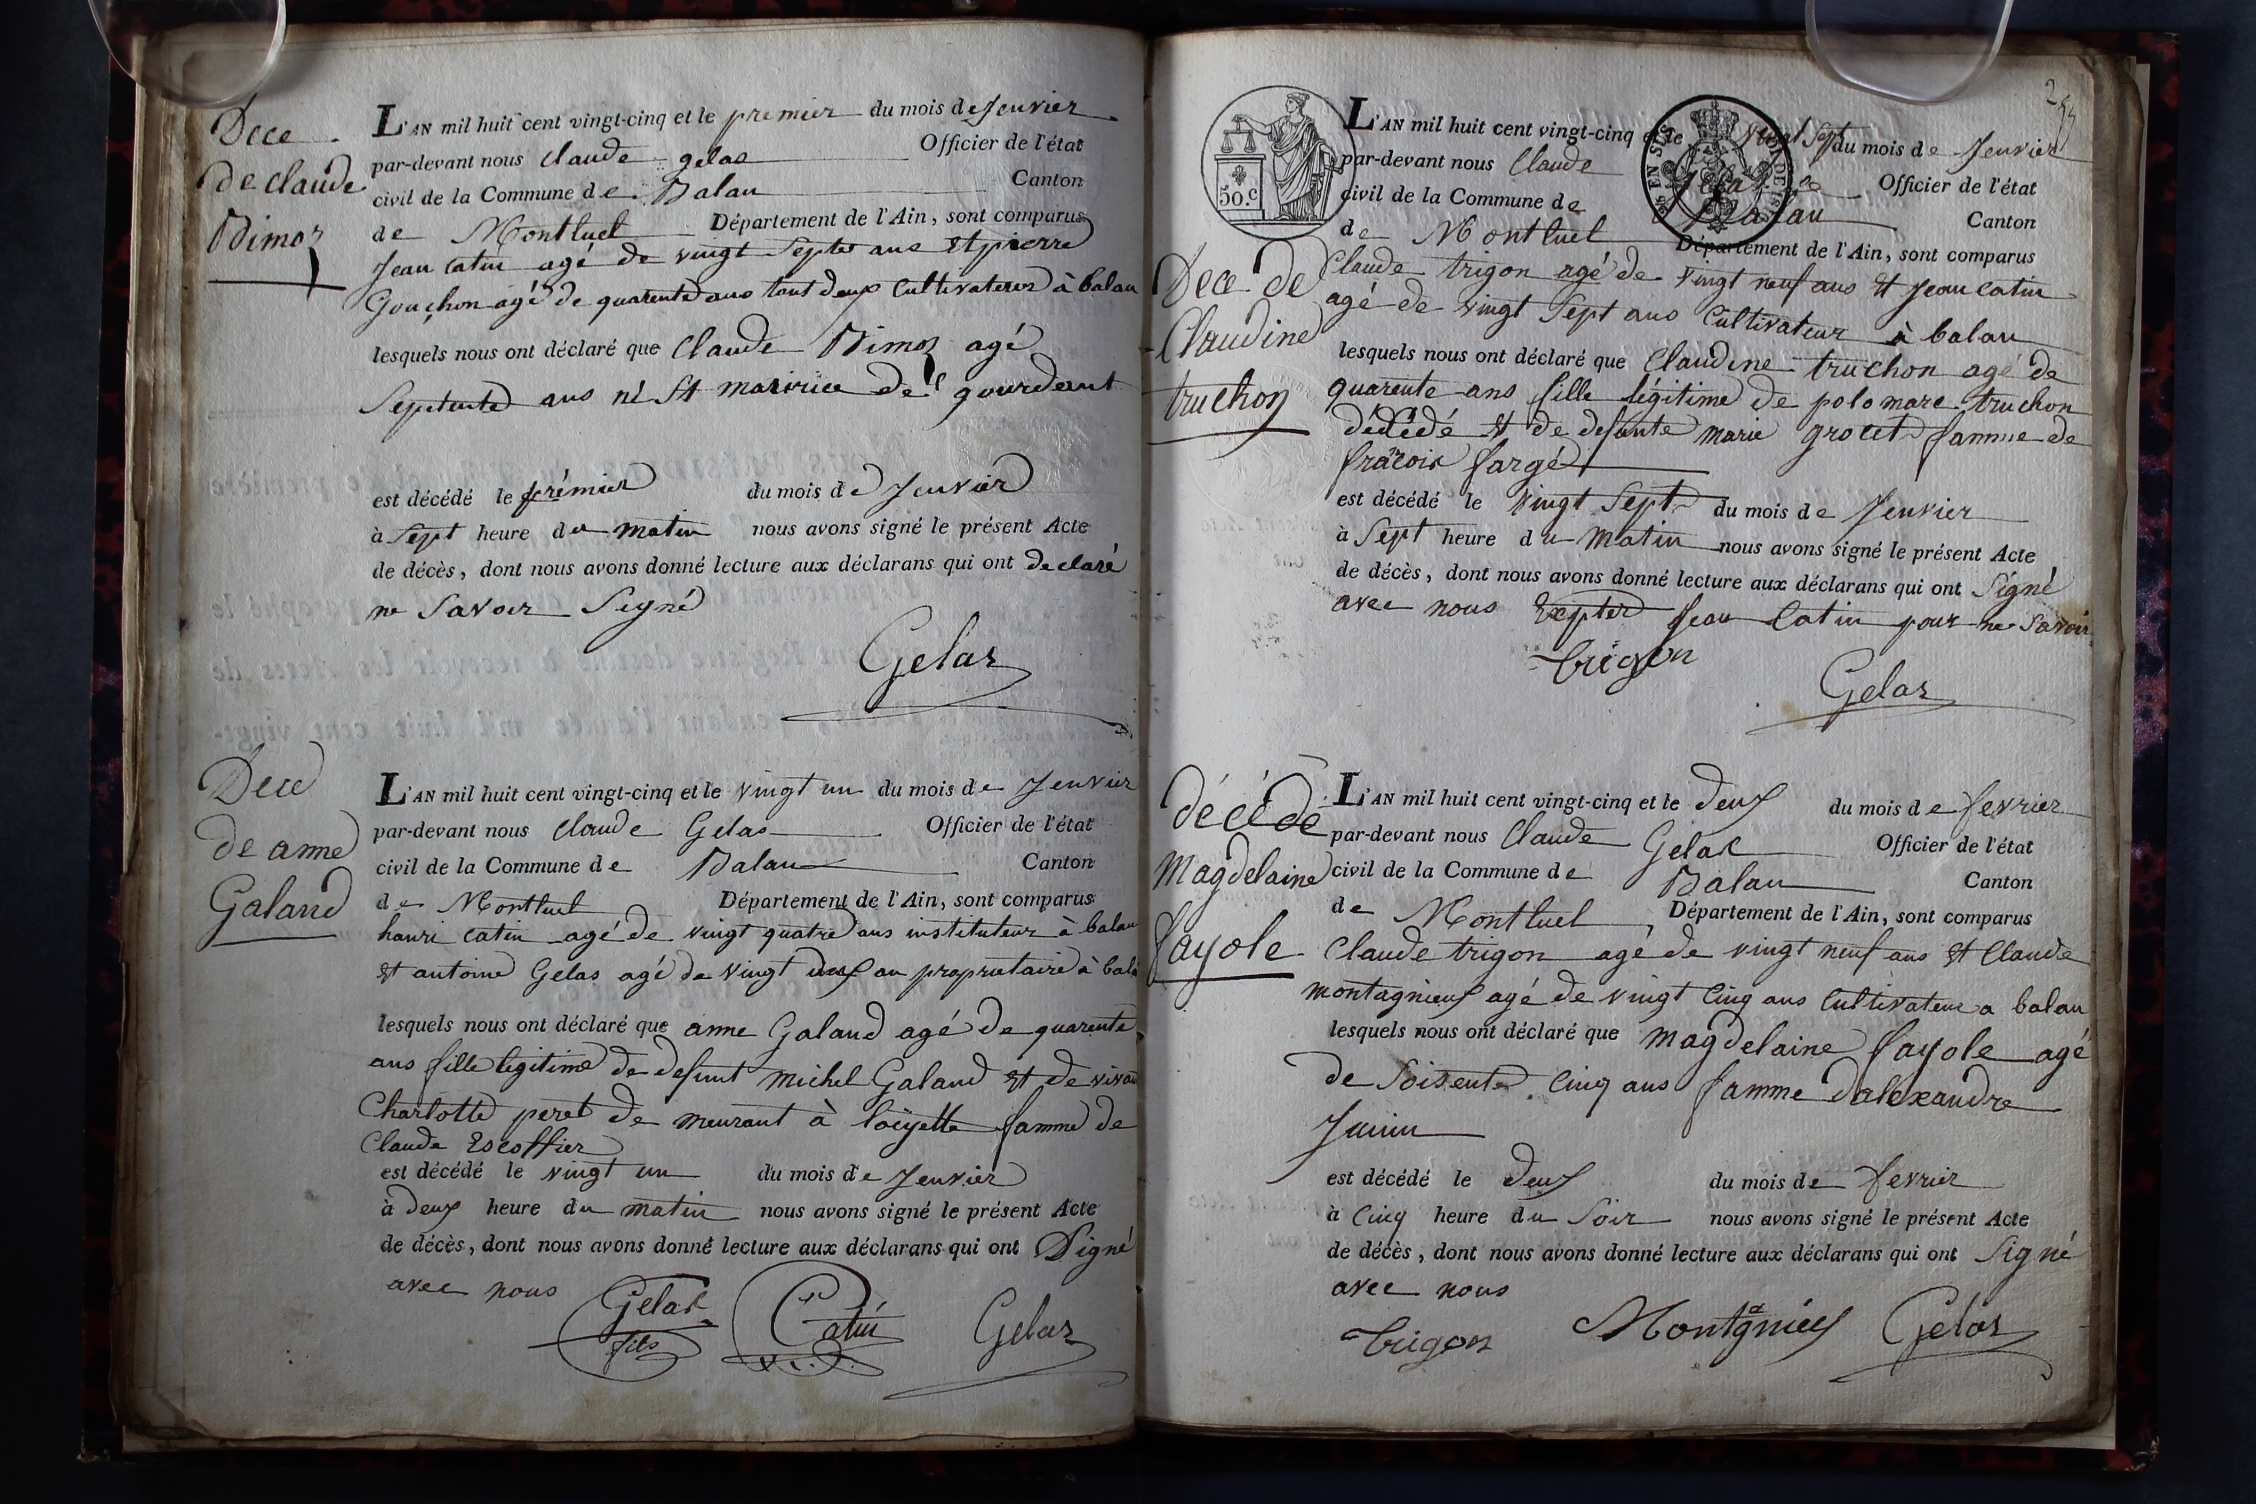 Dece
de claude
Bimoz
L'AN mil huit cent vingt-cinq et le premier du mois de Jenvier
par-devant nous claude gelas Officier de l'état
civil de la Commune de Balan Canton
de Montluel Département de l'Ain, sont comparus
Jean catin agé de vingt septe ans et pierre
Gouchon agé de quarente ans tout deux Cultivateres à balan
lesquels nous ont déclaré que Claude Bimoz agé
Septente ans né St maurice de gourdant
est décédé le prémier du mois de Jenvier
à Sept heure du matin nous avons signé le présent Acte
de décès, dont nous avons donné lecture aux déclarans qui ont declaré
ne Savoir Signé
Gelas
Dece
de anne
Galand
L'AN mil huit cent vingt-cinq et le vingt un du mois de Jenvier
par-devant nous Claude Gelas Officier de l'état
civil de la Commune de Balan Canton
de Montluel Département de l'Ain, sont comparus
hanri catin agé de vingt quatre ans instituteur à balan
et antoine Gelas agé de vingt deux an proprietaire à bala
lesquels nous ont déclaré que anne Galand agé de quarente
ans fille legitime de defunt michel Galand et de vivan
Charlotte peret de meurant à loëyette famme de
Claude Escoffier
est décédé le vingt un du mois de Jenvier
à deux heure du matin nous avons signé le présent Acte
de décès, dont nous avons donné lecture aux déclarans qui ont Signé
avec nous
Gelas fils Catin Gelas
50.c
EN SUS
Dece de
Claudine
truchon
L'AN mil huit cent vingt-cinq et le vingt Sept du mois de Jenvier
par-devant nous Claude Gelas Officier de l'état
civil de la Commune de Balan Canton
de Montluel Département de l'Ain, sont comparus
Claude trigon agé de vingt neuf ans et Jean catin
agé de vingt Sept ans Cultivateur à balan
lesquels nous ont déclaré que Claudine truchon agé de
quarente ans fille légitime de polo marc truchon
décédé et de defunte marie grocet famme de
françois fargé
est décédé le vingt Sept du mois de Jenvier
à Sept heure du Matin nous avons signé le présent Acte
de décès, dont nous avons donné lecture aux déclarans qui ont Signé
avec nous Expter Jean Catin pour ne Savoir
trigon Gelas
décéde
Magdelaine
fayole
L'AN mil huit cent vingt-cinq et le deux du mois de fevrier
par-devant nous Claude Gelas Officier de l'état
civil de la Commune de Balan Canton
de Montluel Département de l'Ain, sont comparus
Claude trigon age de vingt neuf ans et Claude
montagnieux agé de vingt Cinq ans Cultivateur a balan
lesquels nous ont déclaré que Magdelaine fayole agé
de Soisente Cinq ans famme d'alexandre
Juinin
est décédé le deux du mois de fevrier
à Cinq heure du Soir nous avons signé le présent Acte
de décès, dont nous avons donné lecture aux déclarans qui ont Signé
avec nous
trigon Montagniéux Gelas